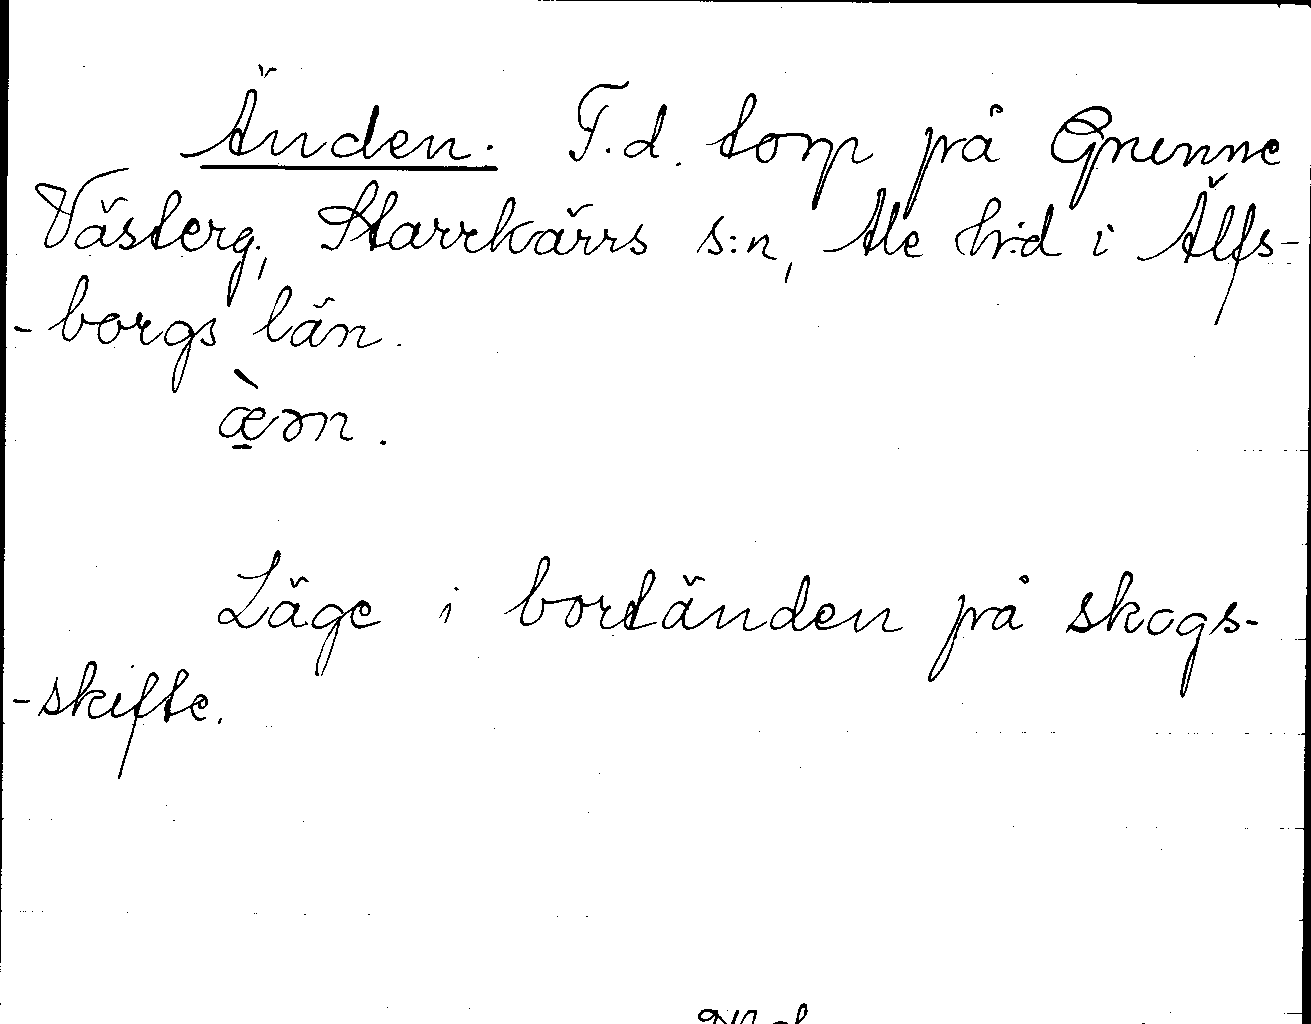 Änden. F.d. torp på Grenne
Västerg, Starrkärrs s:n, Ale h:d i Älfs-
-borgs län.
æ̠̀ən.
Läge i bortänden på skogs-
-skifte.